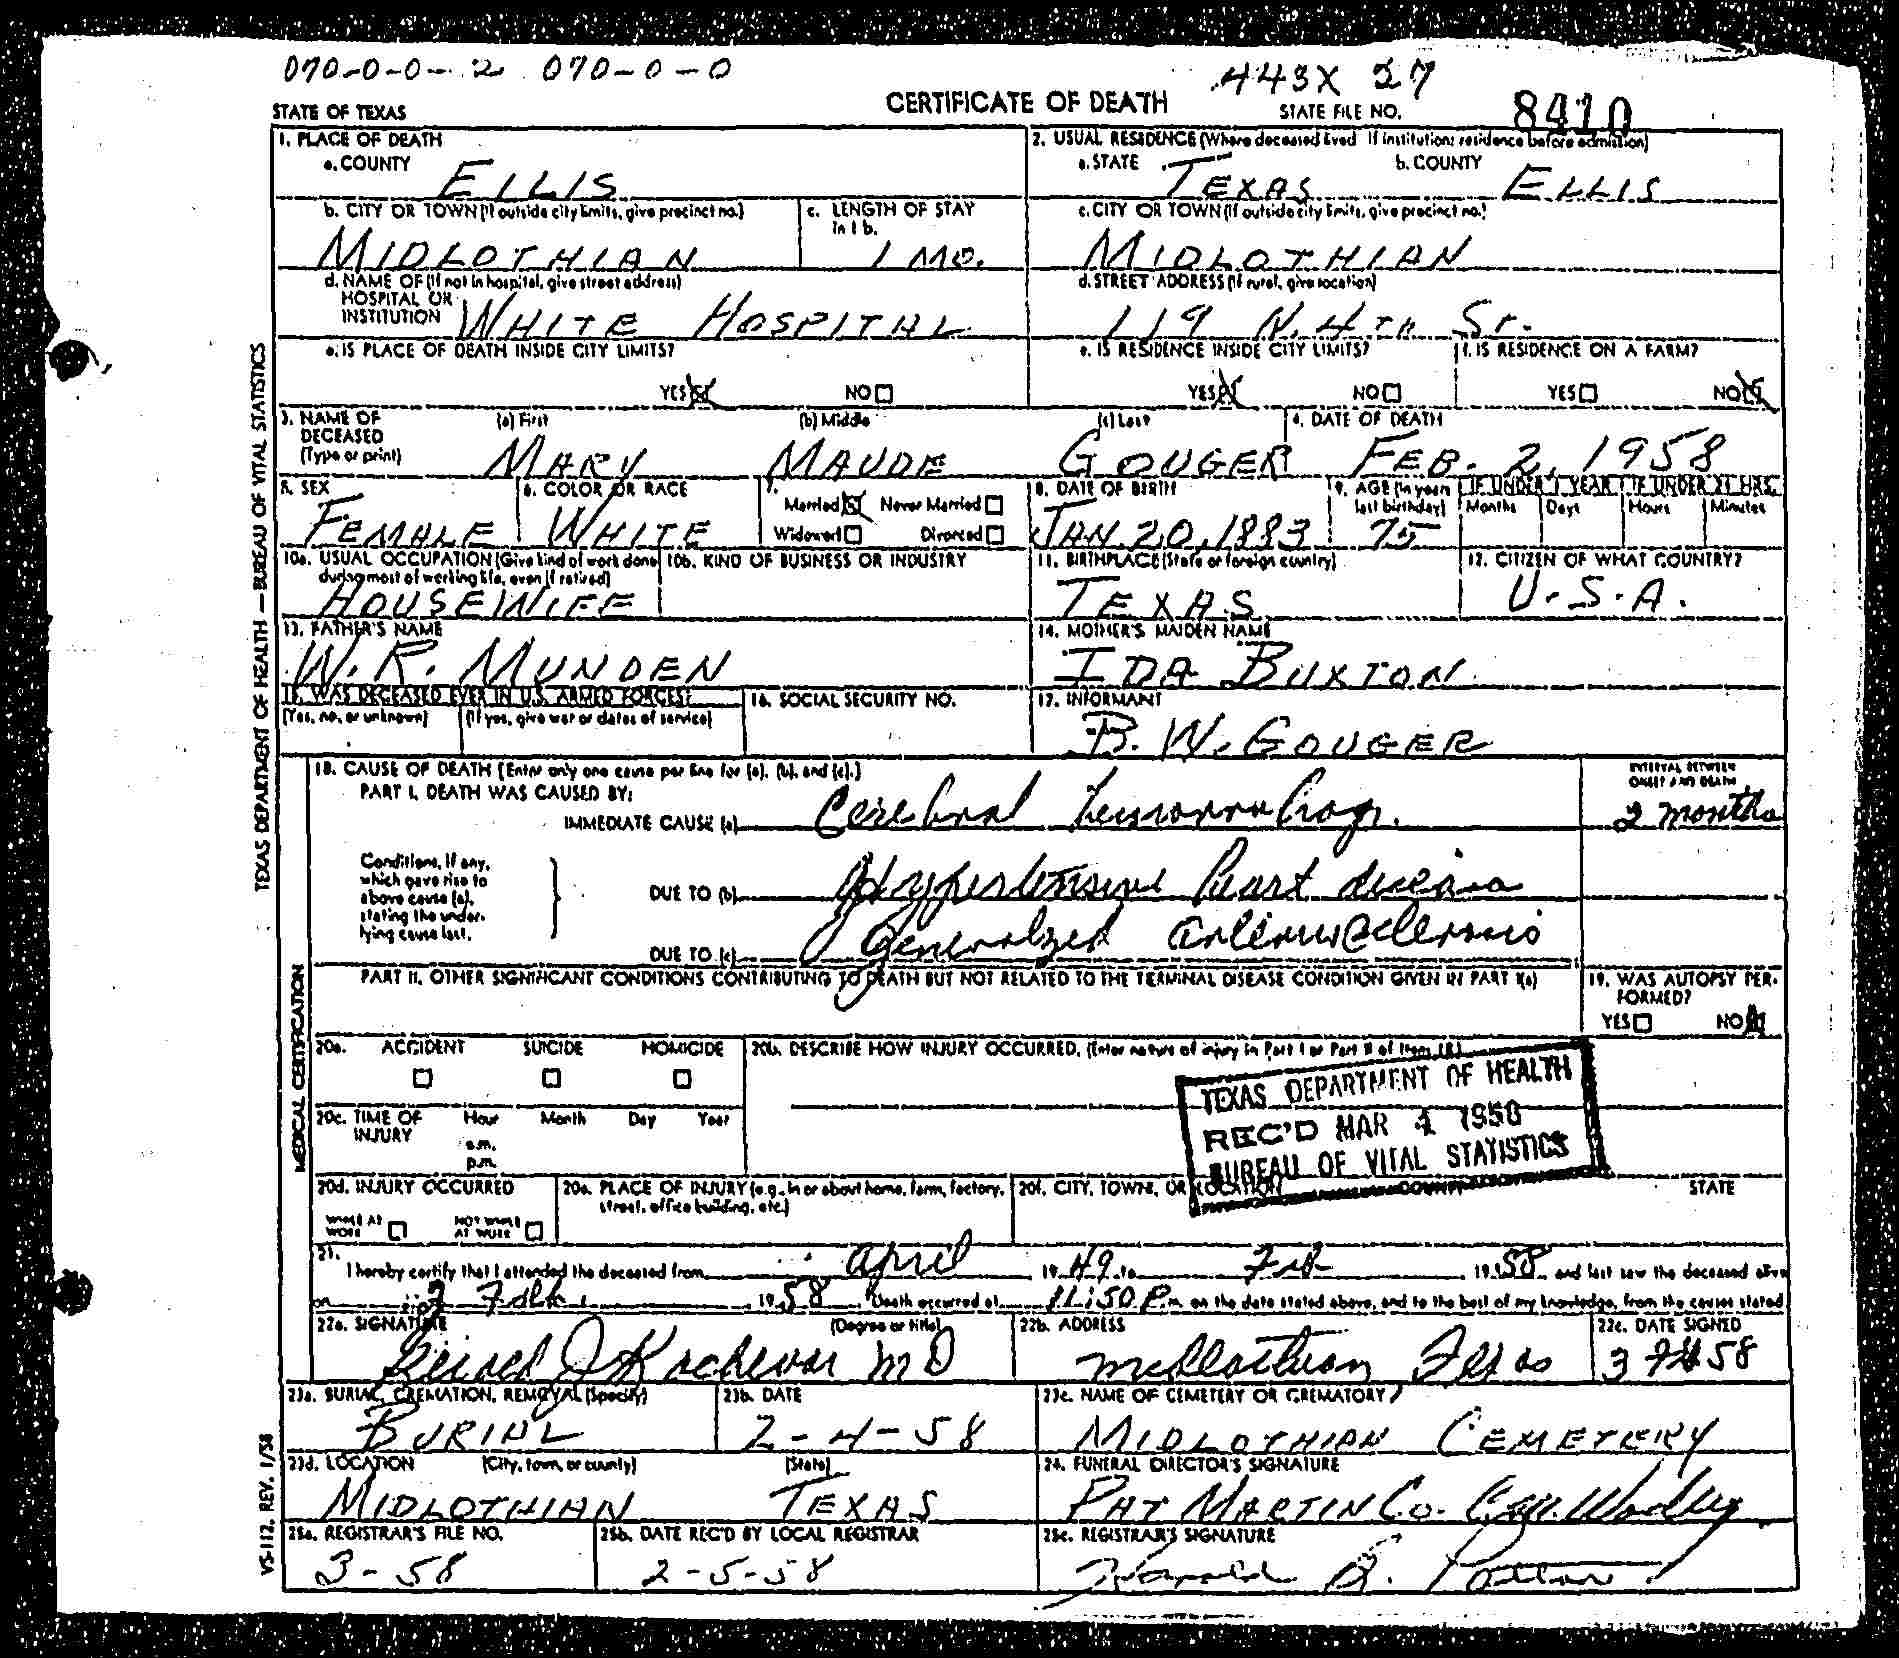 070-0-0- 2 070-0-0
443X 27
STATE OF TEXAS
CERTIFICATE OF DEATH
STATE FILE NO. 8410
1. PLACE OF DEATH
a. COUNTY ELLIS
2. USUAL RESIDENCE (Where deceased lived If institution: residence before admission)
a. STATE TEXAS b. COUNTY ELLIS
b. CITY OR TOWN (If outside city limits, give precinct no.) MIDLOTHIAN
c. LENGTH OF STAY in 1 b. 1 MO.
c. CITY OR TOWN (If outside city limits, give precinct no.) MIDLOTHIAN
d. NAME OF (If not in hospital, give street address) HOSPITAL OR INSTITUTION WHITE HOSPITAL
d. STREET ADDRESS (If rural, give location) 119 N. 4TH ST.
e. IS PLACE OF DEATH INSIDE CITY LIMITS?
YES NO
e. IS RESIDENCE INSIDE CITY LIMITS?
YES NO
f. IS RESIDENCE ON A FARM?
YES NO
3. NAME OF DECEASED (Type or print)
(a) First MARY
(b) Middle MAUDE
(c) Last GOUGER
4. DATE OF DEATH FEB. 2, 1958
5. SEX FEMALE
6. COLOR OR RACE WHITE
7. Married Never Married
Widowed Divorced
8. DATE OF BIRTH JAN. 20, 1883
9. AGE (In years last birthday) 75
IF UNDER 1 YEAR Months Days
IF UNDER 24 HRS. Hours Minutes
10a. USUAL OCCUPATION (Give kind of work done during most of working life, even if retired) HOUSEWIFE
10b. KIND OF BUSINESS OR INDUSTRY
11. BIRTHPLACE (State or foreign country) TEXAS
12. CITIZEN OF WHAT COUNTRY? U.S.A.
13. FATHER'S NAME W. R. MUNDEN
14. MOTHER'S MAIDEN NAME IDA BUXTON
15. WAS DECEASED EVER IN U.S. ARMED FORCES?
(Yes, no, or unknown) (If yes, give war or dates of service)
16. SOCIAL SECURITY NO.
17. INFORMANT B. W. GOUGER
18. CAUSE OF DEATH [Enter only one cause per line for (a), (b), and (c).]
PART I. DEATH WAS CAUSED BY:
IMMEDIATE CAUSE (a) Cerebral
INTERVAL BETWEEN ONSET AND DEATH 2 months
Conditions, if any, which gave rise to above cause (a), stating the under- lying cause last.
DUE TO (b) Hypertensive heart
DUE TO (c) Generalized
PART II. OTHER SIGNIFICANT CONDITIONS CONTRIBUTING TO DEATH BUT NOT RELATED TO THE TERMINAL DISEASE CONDITION GIVEN IN PART I(a)
19. WAS AUTOPSY PER- FORMED?
YES NO
20a. ACCIDENT SUICIDE HOMICIDE
20b. DESCRIBE HOW INJURY OCCURRED. (Enter nature of injury in Part I or Part II of Item 18.)
20c. TIME OF INJURY Hour Month Day Year
a.m.
p.m.
TEXAS DEPARTMENT OF HEALTH
REC'D MAR 1958
BUREAU OF VITAL STATISTICS
20d. INJURY OCCURRED
WHILE AT WORK NOT WHILE AT WORK
20e. PLACE OF INJURY (e.g., in or about home, farm, factory, street, office building, etc.)
20f. CITY, TOWN, OR LOCATION COUNTY STATE
21. I hereby certify that I attended the deceased from April 1949 to Feb 1958 and last saw the deceased alive
on 2 Feb. 1958. Death occurred at 11:50 P.m. on the date stated above, and to the best of my knowledge, from the causes stated
22a. SIGNATURE (Degree or title) M D
22b. ADDRESS Midlothian Texas
22c. DATE SIGNED 3 Feb 58
23a. BURIAL, CREMATION, REMOVAL (Specify) BURIAL
23b. DATE 2-4-58
23c. NAME OF CEMETERY OR CREMATORY MIDLOTHIAN CEMETERY
23d. LOCATION (City, town, or county) (State) MIDLOTHIAN TEXAS
24. FUNERAL DIRECTOR'S SIGNATURE PAT MARTIN CO.
25a. REGISTRAR'S FILE NO. 3-58
25b. DATE REC'D BY LOCAL REGISTRAR 2-5-58
25c. REGISTRAR'S SIGNATURE Harold B.
TEXAS DEPARTMENT OF HEALTH — BUREAU OF VITAL STATISTICS
MEDICAL CERTIFICATION
VS-112, REV. 1/58